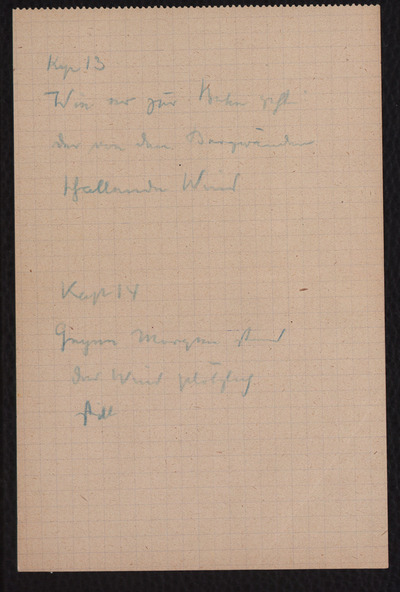 Kap 13
Wie er zur Bahn geht
der von den Bergwänden
hallende Wind
Kapt 14
Gegen Morgen stand
der Wind plötzlich
still